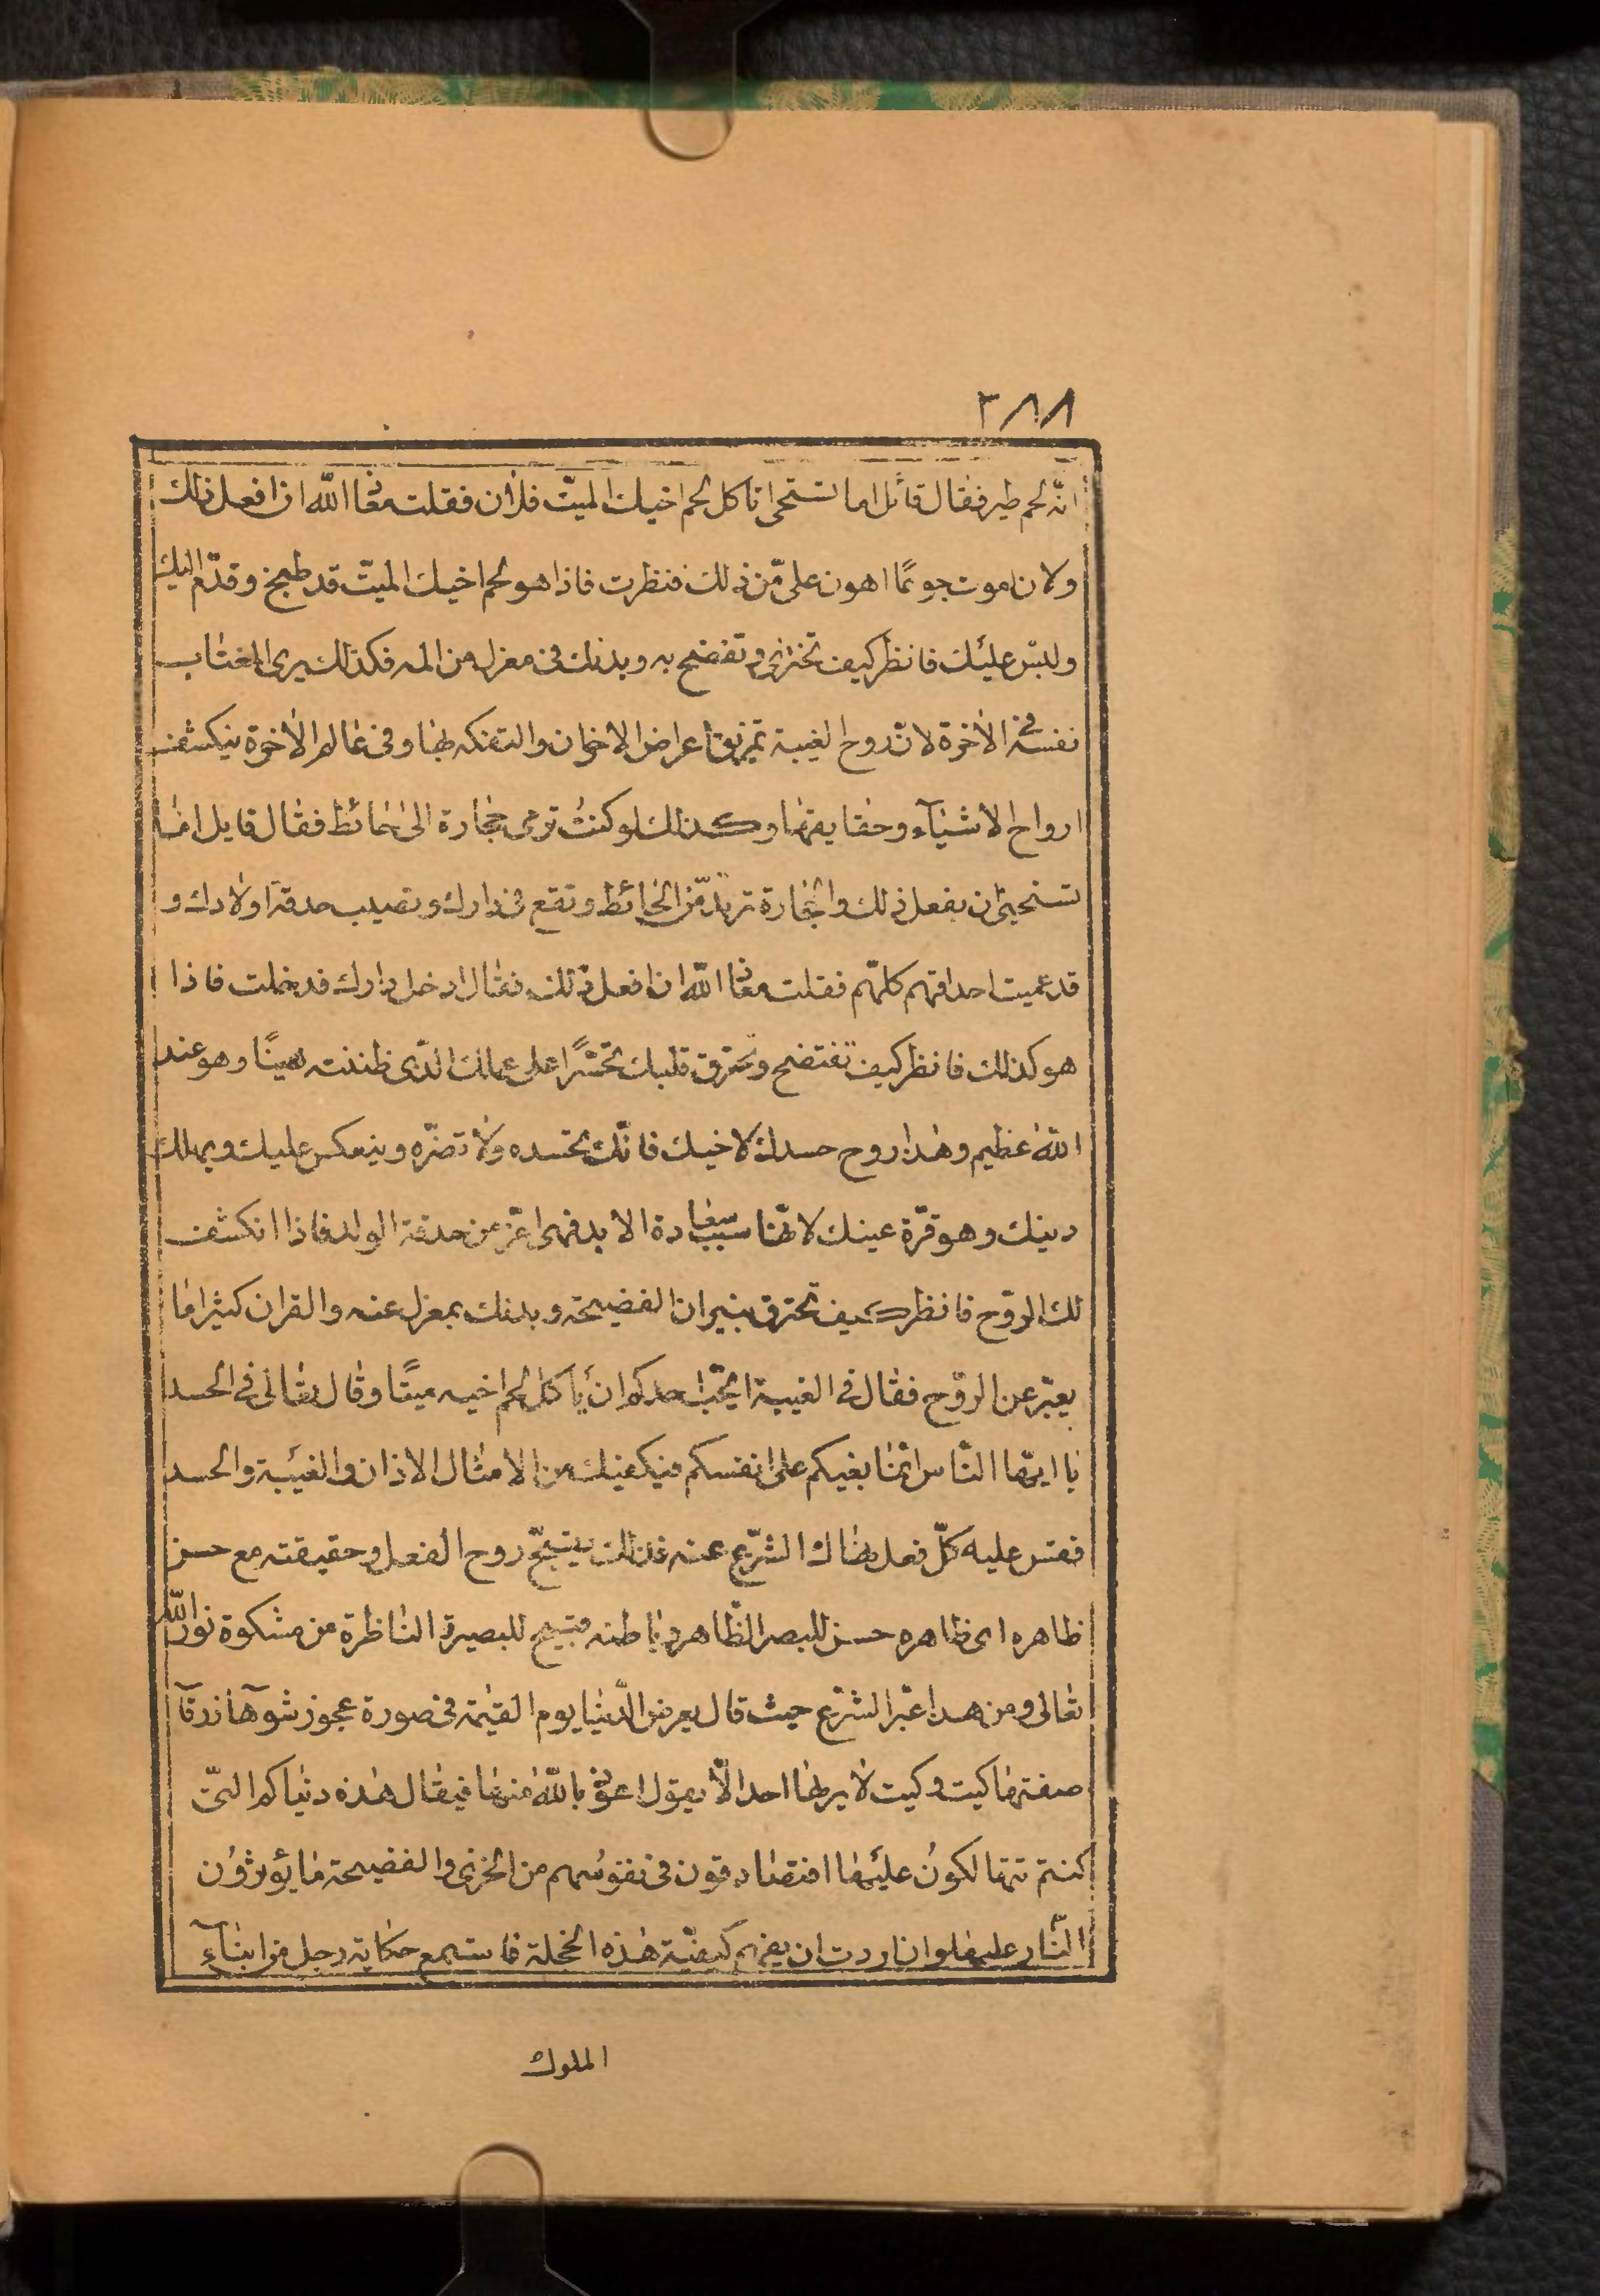 ٣٨٨
انّه لحم طير فقال قائل اما تستحى تاكل لحم اخيك الميّت فلان فقلت معاذ الله ان افعل ذلك
ولان اموت جوعًا اهون علىّ من ذلك فنظرت فاذا هو لحم اخيك الميّت قد طبخ وقدّم اليك
ولبّس عليك فانظر كيف تخزى وتفتضح به وبدنك فى معزل من المه فكذلك يرى المغتاب
نفسه فى الاخرة لانّ روح الغيبة تمزيق اعراض الاخوان والتفكه بها وفى عالم الاخرة ينكشف
ارواح الاشيآء وحقايقها وكذلك لو كنت ترمى حجارة الى حائط فقال قايل اما
تستحيى ان تفعل ذلك والحجارة ترتدّ من الحائط وتقع فى دارك وتصيب حدقة اولادك و
قد عميت احداقهم كلّهم فقلت معاذ الله ان افعل ذلك فقال ادخل دارك فدخلت فاذا
هو كذلك فانظر كيف تفتضح وتحترق قلبك تحسّرًا على عملك الّذى ظننته هينًا وهو عند
الله عظيم وهذا روح حسدك لاخيك فانّك تحسده ولا تضرّه وينعكس عليك ويهلك
دينك وهو قرّة عينك لانّها سبب سعادة الابد فهى اعزّ من حدقة الولد فاذا انكشف
لك الرّوح فانظر كيف تحترق بنيران الفضيحة وبدنك بمعزل عنه والقران كثيرا ما
يعبّر عن الرّوح فقال فى الغيبة ايحبّ احدكم ان ياكل لحم اخيه ميتًا وقال تعالى فى الحسد
يا ايّها النّاس انّما بغيكم على انفسكم فيكفيك من الامثال الاذان والغيبة والحسد
فقس عليه كلّ فعل نهاك الشّرع عنه فذلك يقبّح روح الفعل وحقيقته مع حسن
ظاهره اى ظاهره حسن للبصر الظّاهر وباطنه قبيح للبصيرة الناظرة من مشكوة نور الله
تعالى ومن هذا عبّر الشّرع حيث قال يعرض الدّنيا يوم القيمة فى صورة عجوز شوهآ زرقآ
صفتها كيت وكيت لا يراها احد الّا يقول اعوذ بالله منها فيقال هذه دنياكم الّتى
كنتم تتهالكون عليها فيصادفون فى نفوسهم من الخزى والفضيحة ما يؤثرون
النّار عليها وان اردت ان يفهم كيفيّة هذه الخجلة فاستمع حكاية رجل من ابنآء
الملوك